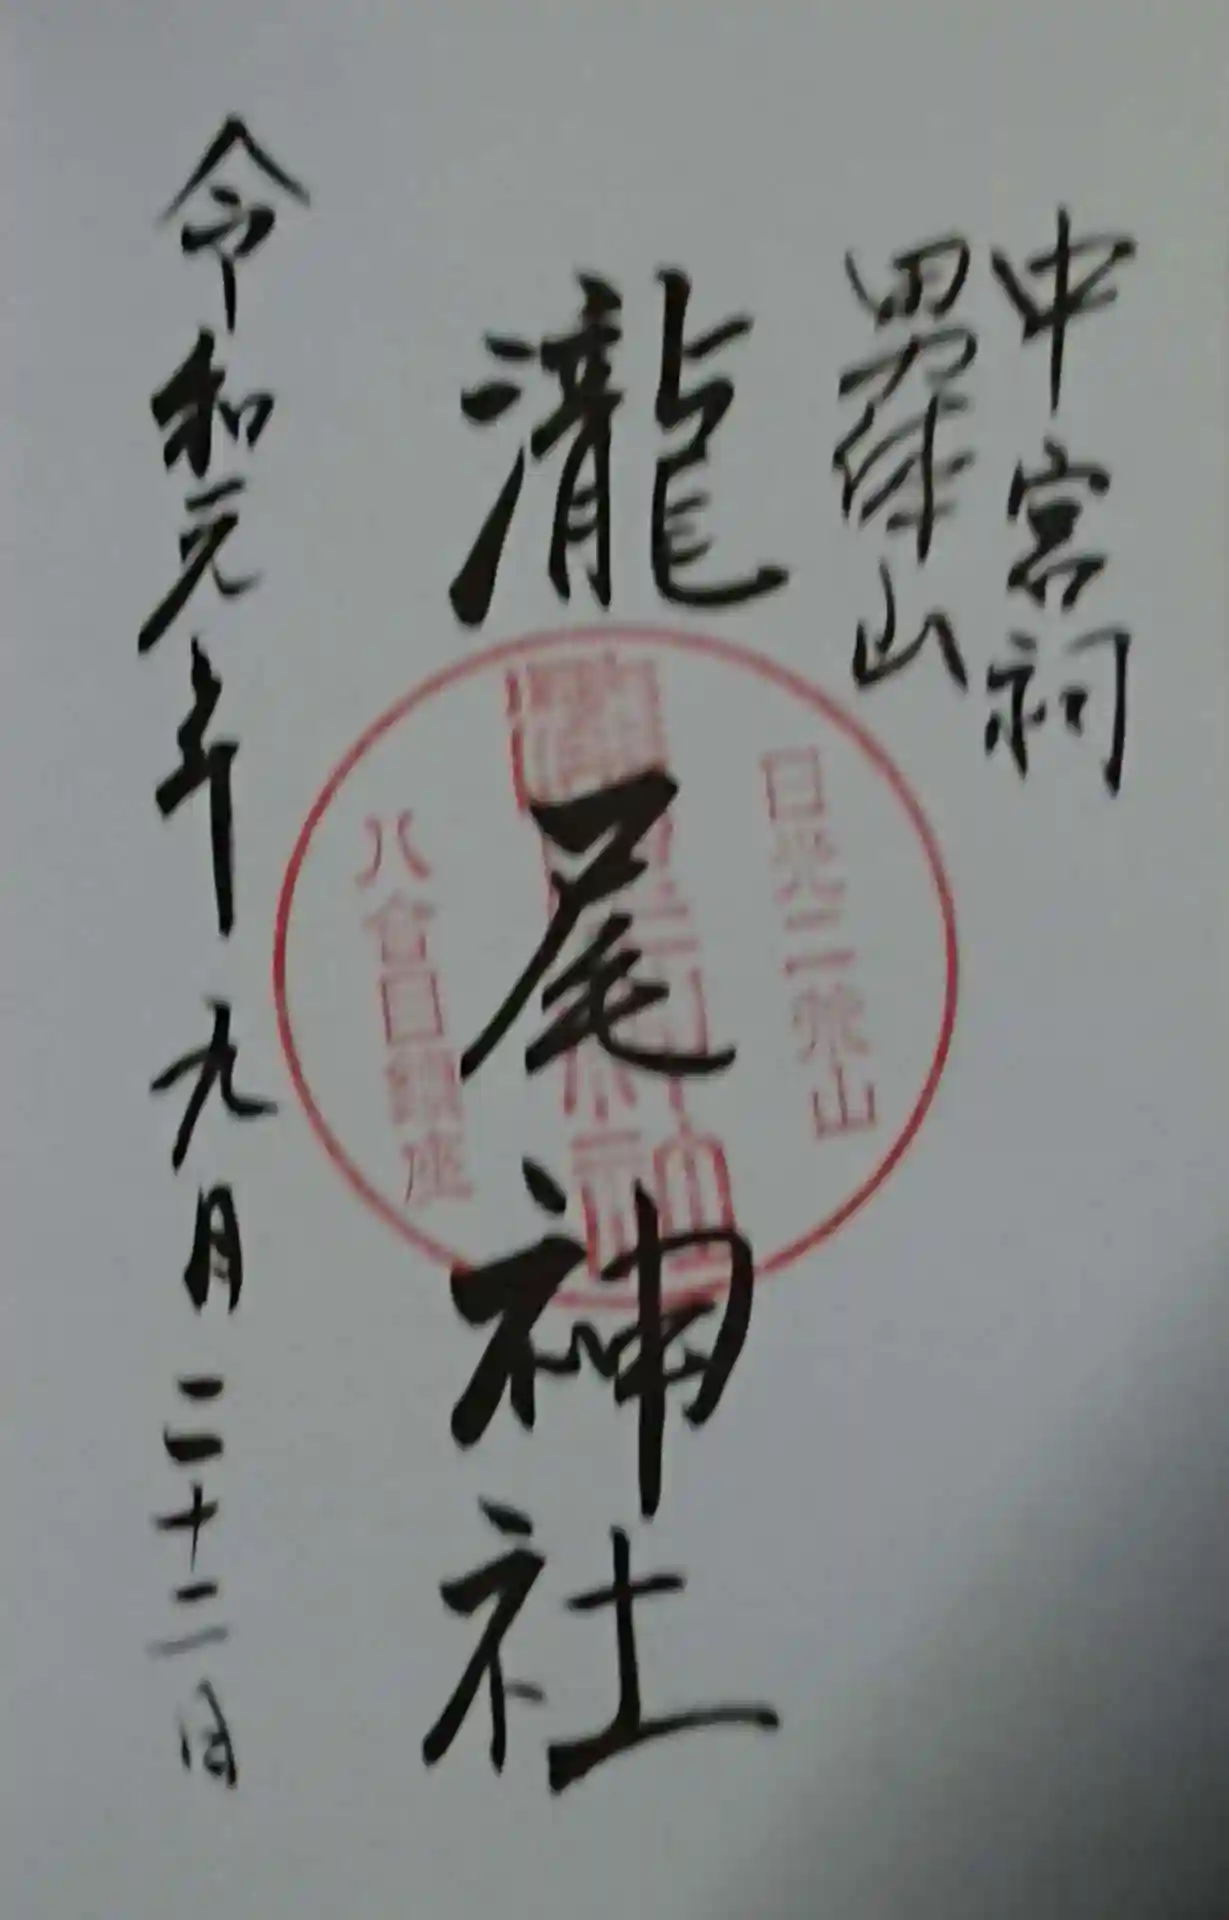 中宮祠
男体山
瀧尾神社
令和元年九月二十二日
日光二荒山
八合目鎮座